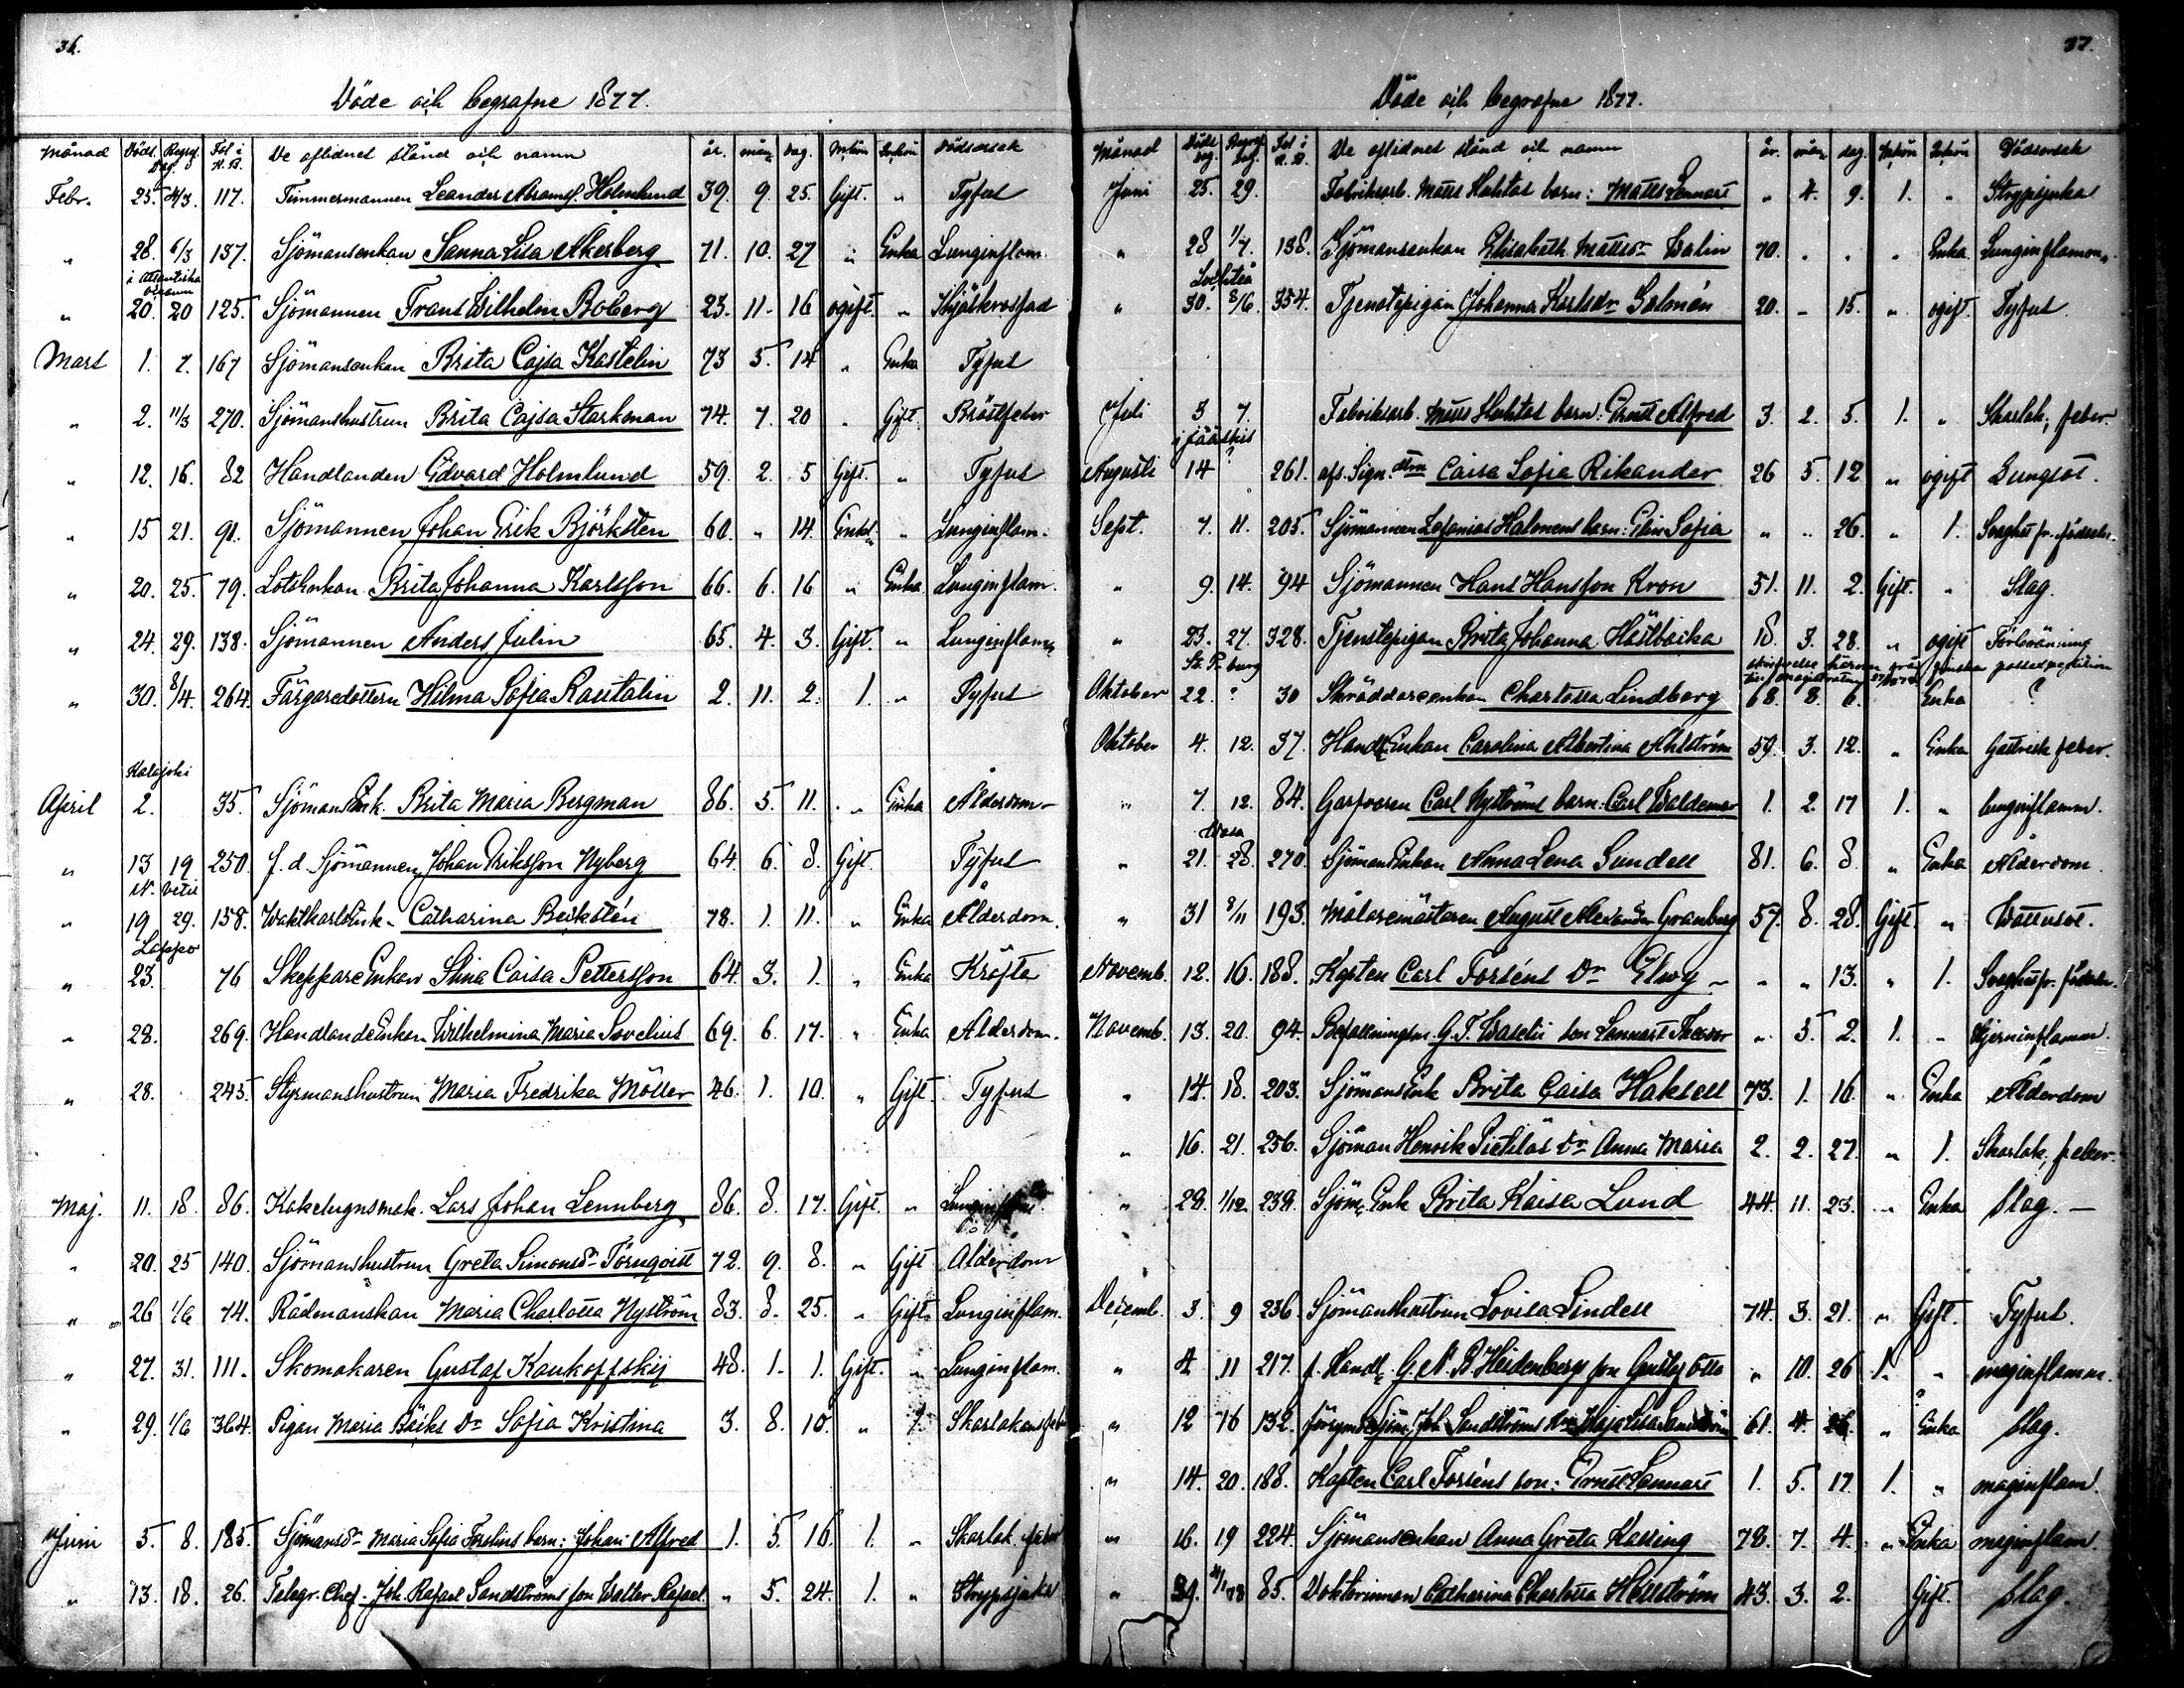 36.
Döde och begrafne 1877.
Månad Döds. Begraf. Dag. Fol i K.B. De aflidnes stånd och namn år. mån. dag. Mankön Qvinkön Dödsorsak
Febr. 25. 4/3. 117. Timmermannen Leander Abramss. Holmlund 39. 9. 25. Gift. " Tyfus
" 28. 6/3 137. Sjömansenkan Sanna Lisa Åkerberg 71. 10. 27 " Enka Lunginflam.
i Atlantiska oceanen
" 20. 20 125. Sjömannen Frans Wilhelm Boberg 23. 11. 16 ogift. "
Mars 1. 7. 167 Sjömansenkan Brita Cajsa Kastelin 73 5. 14 " Enka Tyfus
" 2. 11/3 270. Sjömanshustrun Brita Cajsa Starkman 74. 7. 20 " Gift. Bröstfeber
" 12. 16. 82 Handlanden Edvard Holmlund 59. 2. 5 Gift. " Tyfus
" 15 21. 91. Sjömannen Johan Erik Björksten 60. " 14. Enkl. " Lunginflam.
" 20. 25. 79. Lotsenkan Brita Johanna Karlsson 66. 6. 16 " Enka Lunginflam.
" 24. 29. 138. Sjömannen Anders Julin 65. 4. 3. Gift. " Lunginflam.
" 30. 8/4. 264. Färgaredottern Hilma Sofia Rautalin 2. 11. 2. 1. " Tyfus
Kalajoki
April 2. 35. Sjömans Enk. Brita Maria Bergman 86. 5. 11. " Enka Ålderdom
" 13 19 250. f. d. Sjömannen Johan Eriksson Nyberg 64. 6. 8. Gift. Tyfus
N. Vetil
" 19 29. 158. Waktkarls Enk. Catharina Beckstén 78. 1. 11. " Enka Ålderdom.
Lappo
" 23. 76 Skeppare Enkan Stina Caisa Pettersson 64. 3. 1. " Enka Kräfta
" 28. 269. Handlande Enkan Wilhelmina Maria Sovelius 69. 6. 17. " Enka Ålderdom.
" 28. 245. Styrmanshustrun Maria Fredrika Möller 46. 1. 10. " Gift. Tyfus
Maj. 11. 18. 86. Kakelugnsmak. Lars Johan Lennberg 86. 8. 17. Gift. "
" 20. 25 140. Sjömanshustrun Greta Simonsdr Törnqvist 72. 9. 8. " Gift Ålderdom
" 26 1/6 74. Rådmanskan Maria Charlotta Nyström 83. 8. 25. " Gift. Lunginflam.
" 27. 31. 111. Skomakaren Gustaf Kaukoffskij 48. 1. 1. Gift. " Lunginflam.
" 29. 1/6 364. Pigan Maria Bäcks Dr Sofia Kristina 3. 8. 10. " 1. Skarlakansfeb
Juni 5. 8. 185. Sjömansdr Maria Sofia Forelius barn: Johan Alfred 1. 5. 16. 1. " Skarlak. feber
" 13. 18. 26. Telegr. Chef. Joh. Rafael Sandströms son Walter Rafael. " 5. 24. 1. " Strypsjuka
37.
Döde och begrafne 1877.
Månad Döds dag. Begraf. dag. Fol i K.B. De aflidnes stånd och namn år. mån. dag. Mankön Qvinkön Dödsorsak
Juni 25. 29. Fabriksarb. Matts Huhtas barn: Matts Lennart " 4. 9. 1. " Strypsjuka
" 28 1/7. 138. Sjömansenkan Elisabeth Mattsdr Walin 70. " " " Enka Lunginflamm.
Lochteå
" 30. 8/6. 354. Tjenstepigan Johanna Karlsdr Salmén 20. " 15. " ogift. Tyfus
Juli 3 7. Fabriksarb. Matts Huhtas barn: Ernst Alfred 3. 2. 5. 1. " Skarlak. feber.
Augusti 14 ? 261. afs. Sign. dtrn Caisa Sofia Rikander 26 5. 12 " ogift Lungsot.
Sept. 7. 11. 205. Sjömannen Zefanias Halmens barn: Elin Sofia " " 26. " 1. Svaghet fr. födseln.
" 9. 14. 94 Sjömannen Hans Hansson Kron 51. 11. 2. Gift. " Slag.
" 23. 27. 328. Tjenstepigan Brita Johanna Hästbacka 18. 3. 28. " ogift Förbränning
St. P. burg
Oktober 22. ? 30 Skräddareenkan Charlotta Lindberg 68. 8. 6. Enka ?
Oktober 4. 12. 37. Handl. Enkan Carolina Albertina Ahlström 59. 3. 12. " Enka Gastrisk feber.
" 7. 12. 84. Garfvaren Carl Nyströms barn: Carl Waldemar 1. 2. 17 1. " lunginflamm.
Wasa
" 21. 28. 270. Sjömans Enkan Anna Lena Sundell 81. 6. 8. " Enka Ålderdom.
" 31 8/11 193. Målaremästaren August Alexander Granberg 57. 8. 28. Gift. " Wattusot.
Novemb. 12. 16. 188. Kapten Carl Forséns Dr Elwy " " 13. " 1. Svaghet fr. födseln.
Novemb. 13. 20. 94. Befallningsm. G. T. Waselii son Lennart Theodor " 5. 2. 1. " Hjerninflamm.
" 14. 18. 203. Sjömans Enk Brita Caisa Haksell 73. 1. 16. " Enka Ålderdom
" 16. 21. 256. Sjöman Henrik Pietiläs Dr Anna Maria 2. 2. 27. " 1. Skarlak. feber.
" 28. 1/12. 239. Sjöm. Enk Brita Kaisa Lund 44. 11. 23. " Enka slag.
Decemb. 3. 9 236 Sjömanshustrun Lovisa Lindell 74. 3. 21. " Gift. Tyfus.
" 4 11 217. f. Handl. G. A. B. Heidenbergs son Gustaf Otto " 10. 26 1. " maginflamm.
" 12 16 132. Joh Sandströms 61. 4. " Enka slag.
" 14. 20. 188. Kapten Carl Forséns son: Ernst Lennart 1. 5. 17. 1. " maginflam.
" 16. 19 224. Sjömansenkan Anna Greta Kassing 78. 7. 4. " Enka maginflam.
" 85. Doktorinnan Catharina Charlotta Hellström 43. 3. 2. Gift. slag.